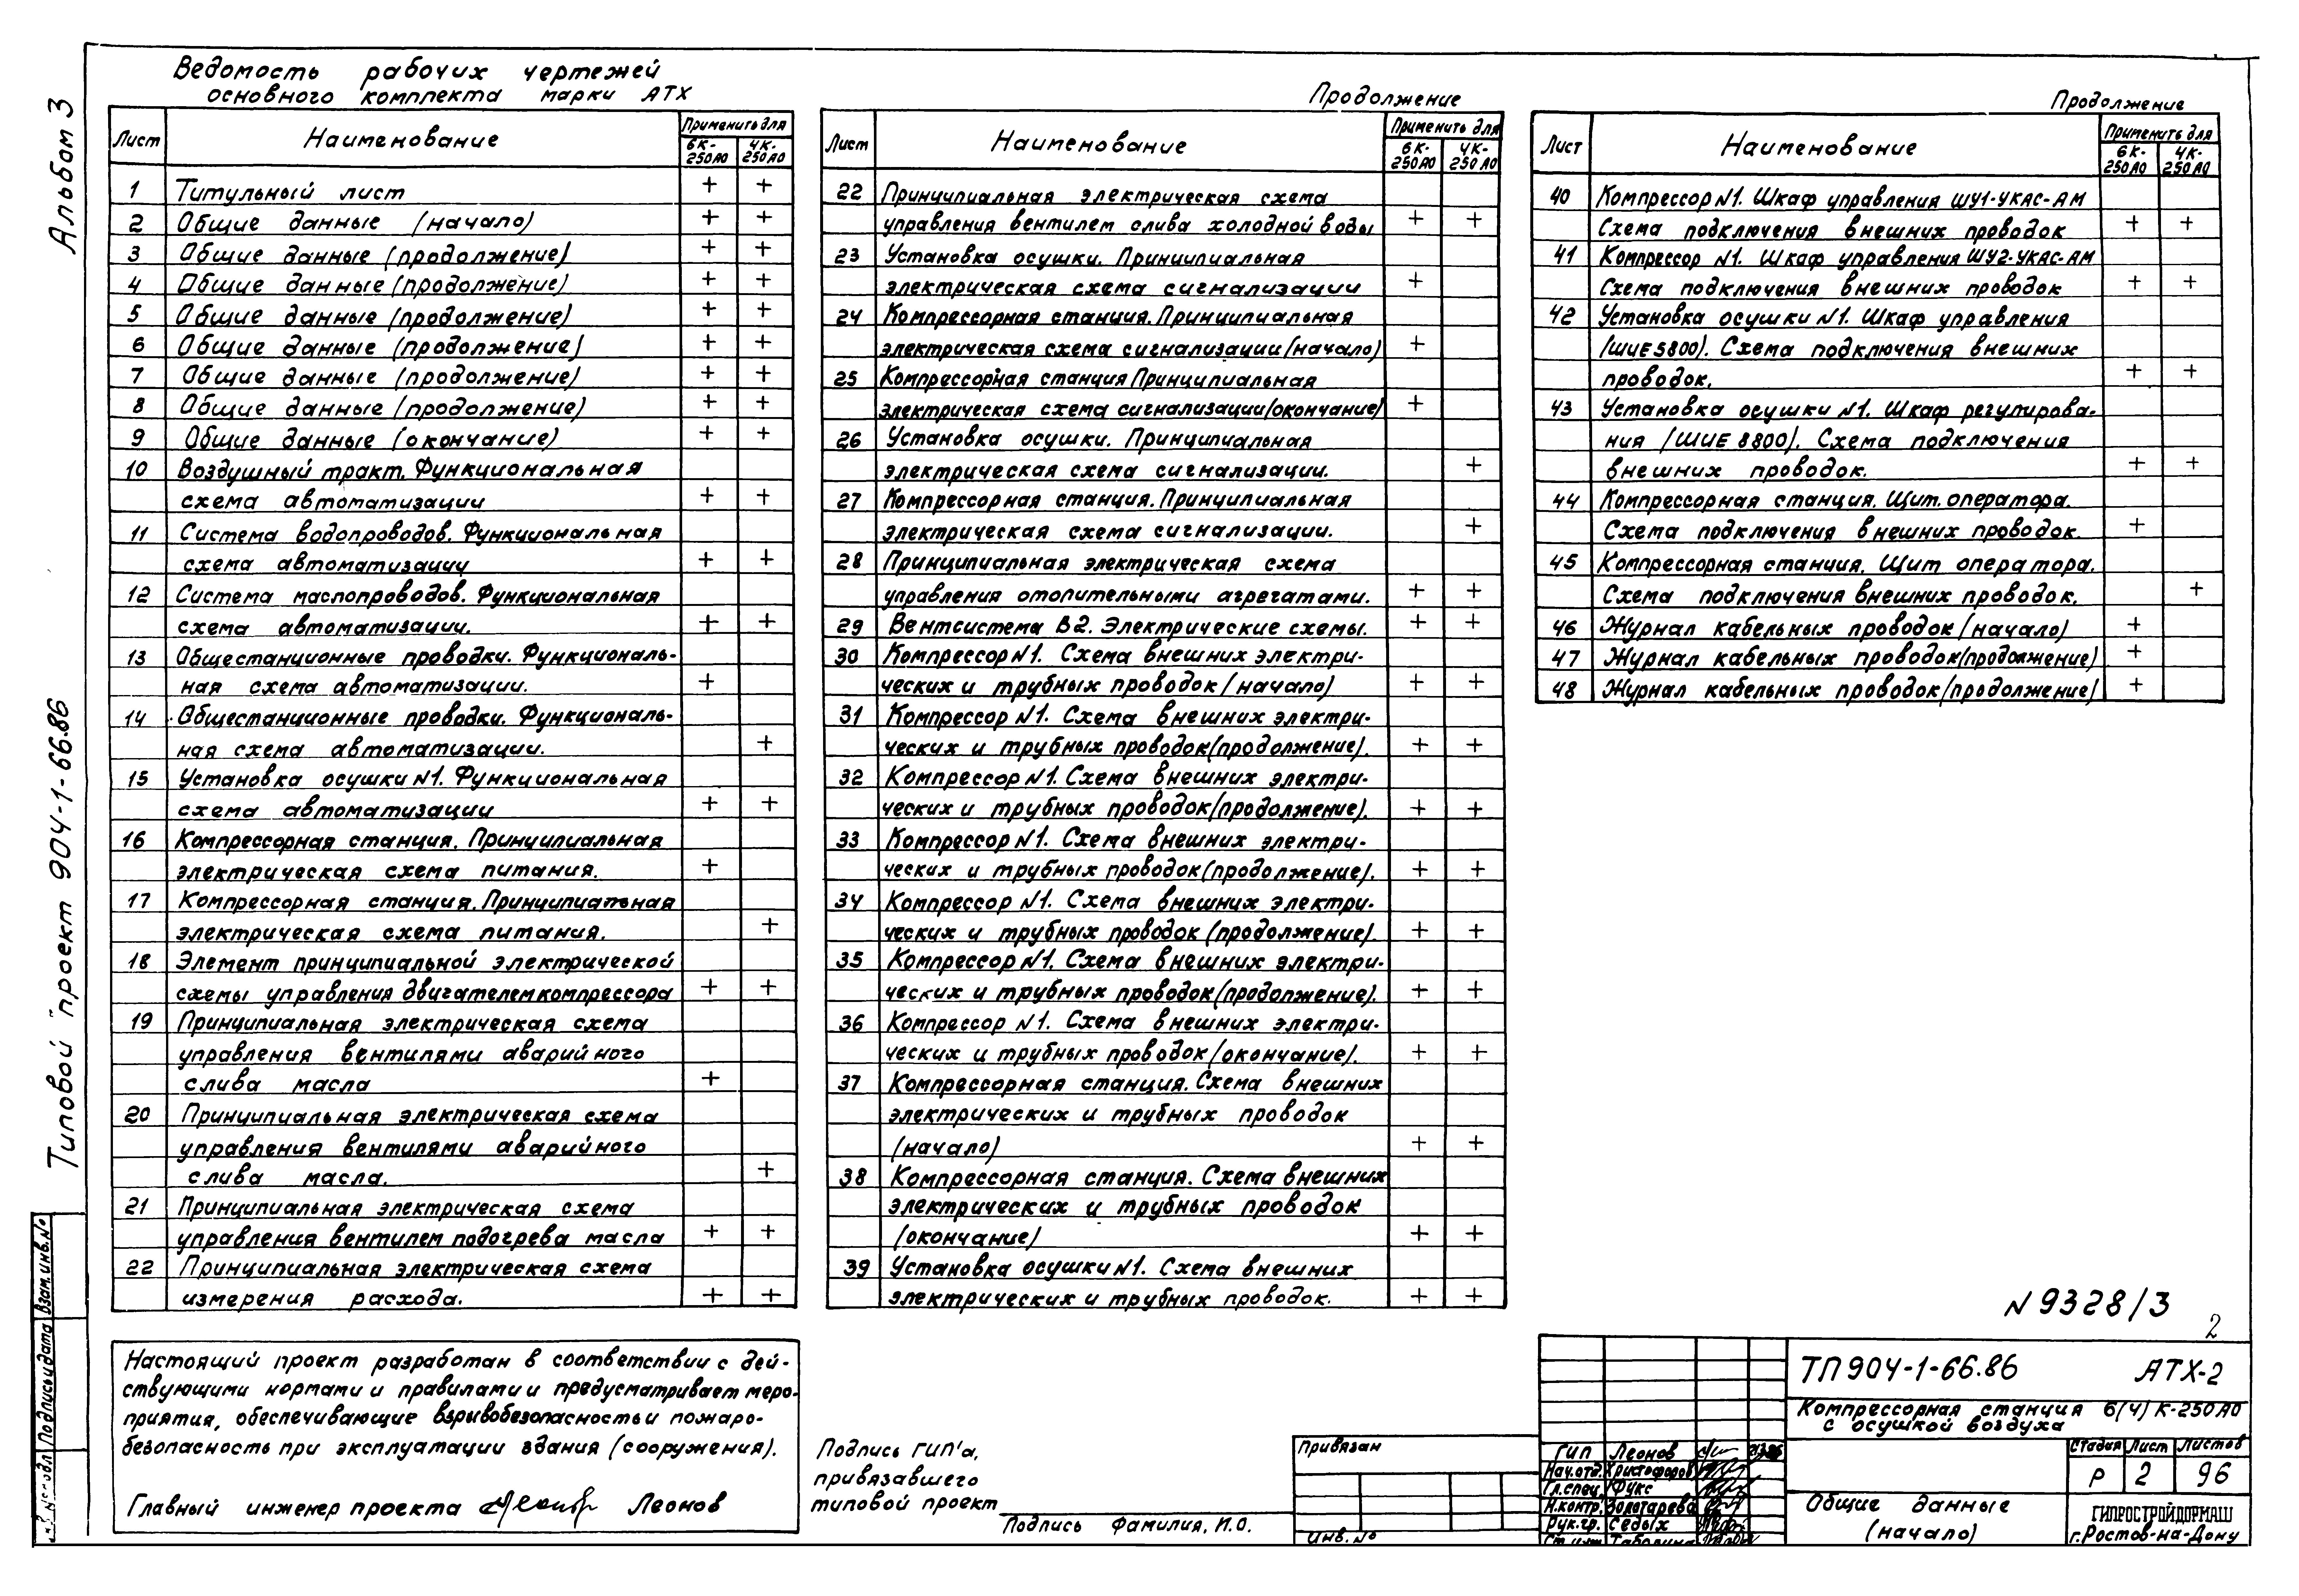 Альбом 3
Типовой проект 904-1-66.86
Взам.инв.№
Подпись и дата
Ведомость рабочих чертежей
основного комплекта марки АТХ
Лист Наименование Применить для
6К-250А0 4К-250А0
1 Титульный лист + +
2 Общие данные (начало) + +
3 Общие данные (продолжение) + +
4 Общие данные (продолжение) + +
5 Общие данные (продолжение) + +
6 Общие данные (продолжение) + +
7 Общие данные (продолжение) + +
8 Общие данные (продолжение) + +
9 Общие данные (окончание) + +
10 Воздушный тракт. Функциональная
схема автоматизации + +
11 Система водопроводов. Функциональная
схема автоматизации + +
12 Система маслопроводов. Функциональная
схема автоматизации. + +
13 Общестанционные проводки. Функциональ-
ная схема автоматизации. +
14 Общестанционные проводки. Функциональ-
ная схема автоматизации. +
15 Установка осушки N1. Функциональная
схема автоматизации + +
16 Компрессорная станция. Принципиальная
электрическая схема питания. +
17 Компрессорная станция. Принципиальная
электрическая схема питания. +
18 Элемент принципиальной электрической
схемы управления двигателем компрессора + +
19 Принципиальная электрическая схема
управления вентилями аварийного
слива масла +
20 Принципиальная электрическая схема
управления вентилями аварийного
слива масла. +
21 Принципиальная электрическая схема
управления вентилем подогрева масла + +
22 Принципиальная электрическая схема
измерения расхода. + +
Продолжение
Лист Наименование Применить для
6К-250А0 4К-250А0
22 Принципиальная электрическая схема
управления вентилем слива холодной воды + +
23 Установка осушки. Принципиальная
электрическая схема сигнализации +
24 Компрессорная станция. Принципиальная
электрическая схема сигнализации (начало) +
25 Компрессорная станция Принципиальная
электрическая схема сигнализации (окончание) +
26 Установка осушки. Принципиальная
электрическая схема сигнализации. +
27 Компрессорная станция. Принципиальная
электрическая схема сигнализации. +
28 Принципиальная электрическая схема
управления отопительными агрегатами. + +
29 Вентсистема В2. Электрические схемы. + +
30 Компрессор N1. Схема внешних электри-
ческих и трубных проводок (начало) + +
31 Компрессор N1. Схема внешних электри-
ческих и трубных проводок (продолжение). + +
32 Компрессор N1. Схема внешних электри-
ческих и трубных проводок (продолжение). + +
33 Компрессор N1. Схема внешних электри-
ческих и трубных проводок (продолжение). + +
34 Компрессор N1. Схема внешних электри-
ческих и трубных проводок (продолжение). + +
35 Компрессор N1. Схема внешних электри-
ческих и трубных проводок (продолжение). + +
36 Компрессор N1. Схема внешних электри-
ческих и трубных проводок (окончание). + +
37 Компрессорная станция. Схема внешних
электрических и трубных проводок
(начало) + +
38 Компрессорная станция. Схема внешних
электрических и трубных проводок
(окончание) + +
39 Установка осушки N1. Схема внешних
электрических и трубных проводок. + +
Продолжение
Лист Наименование Применить для
6К-250А0 4К-250А0
40 Компрессор N1. Шкаф управления ШУ1-УКАС-АМ
Схема подключения внешних проводок + +
41 Компрессор N1. Шкаф управления ШУ2-УКАС-АМ
Схема подключения внешних проводок + +
42 Установка осушки N1. Шкаф управления
(ШИЕ5800). Схема подключения внешних
проводок. + +
43 Установка осушки N1. Шкаф регулирова-
ния (ШИЕ 8800). Схема подключения
внешних проводок. + +
44 Компрессорная станция. Щит оператора.
Схема подключения внешних проводок. +
45 Компрессорная станция. Щит оператора.
Схема подключения внешних проводок. +
46 Журнал кабельных проводок (начало) +
47 Журнал кабельных проводок (продолжение) +
48 Журнал кабельных проводок (продолжение) +
N 9328/3
2
Настоящий проект разработан в соответствии с дей-
ствующими нормами и правилами и предусматривает меро-
приятия, обеспечивающие взрывобезопасность и пожаро-
безопасность при эксплуатации здания (сооружения).
Главный инженер проекта Леонов
Подпись ГИП'а,
привязавшего
типовой проект
Подпись Фамилия, И.О.
Привязан
Инв. №
ГИП Леонов
Нач.отд. Христофоров
Гл.спец. Фукс
Н.контр. Золотарева
Рук.гр. Седых
ТП 904-1-66.86 АТХ-2
Компрессорная станция 6(4)К-250А0
с осушкой воздуха
Стадия Лист Листов
Р 2 96
Общие данные
(начало)
ГИПРОСТРОЙДОРМАШ
г.Ростов-на-Дону